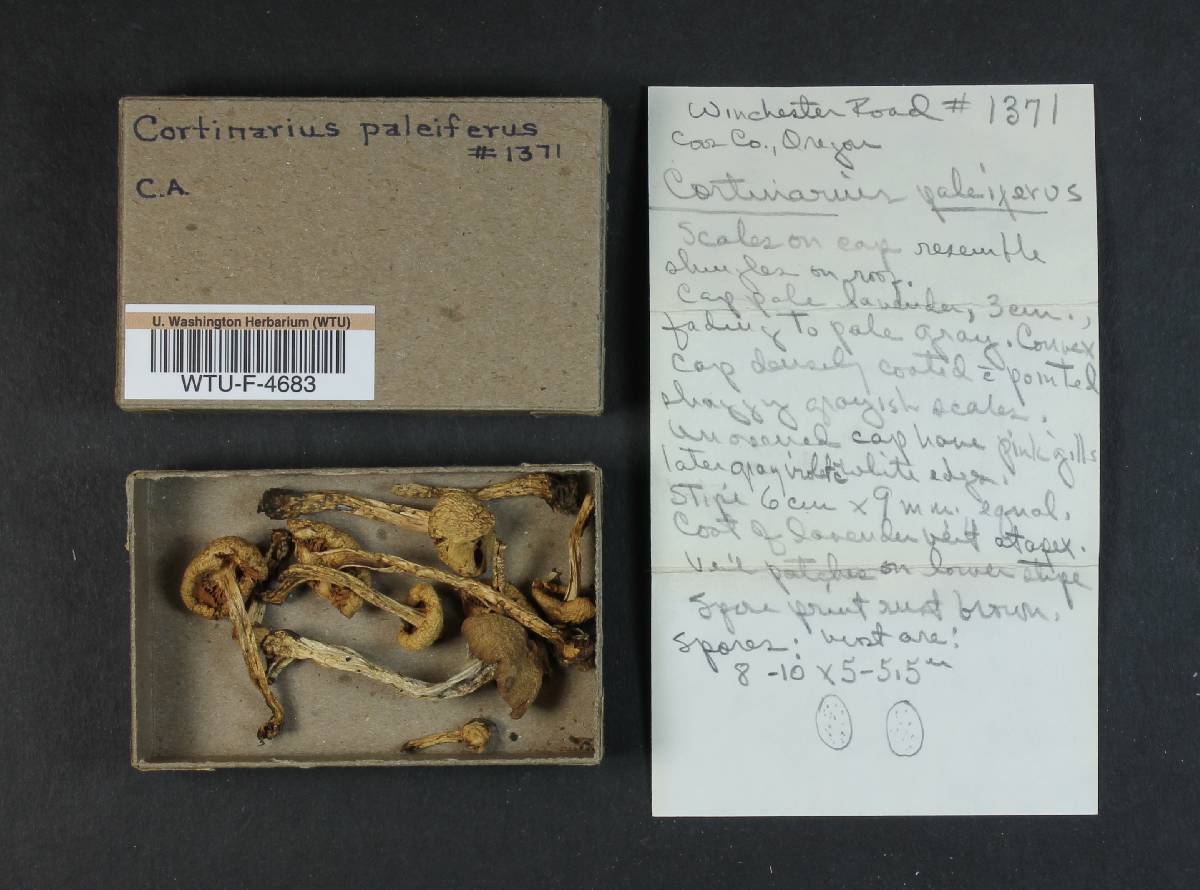 Cortinarius paleiferus
#1371
C.A.
U. Washington Herbarium (WTU)
WTU-F-4683
Winchester Road # 1371
Coos Co., Oregon
Cortinarius paleiferus
Scales on cap resemble
shingles on roof.
Cap pale lavender, 3 cm.,
fading to pale gray. Convex
Cap densely coated c̄ pointed
shaggy grayish scales.
Unopened cap have pink gills
later gray violet white edges.
Stipe 6 cm x 9 mm. equal.
Coat of lavender at apex.
Veil patches on lower stipe
Spore print rust brown.
Spores: most are:
8-10 x 5-5.5